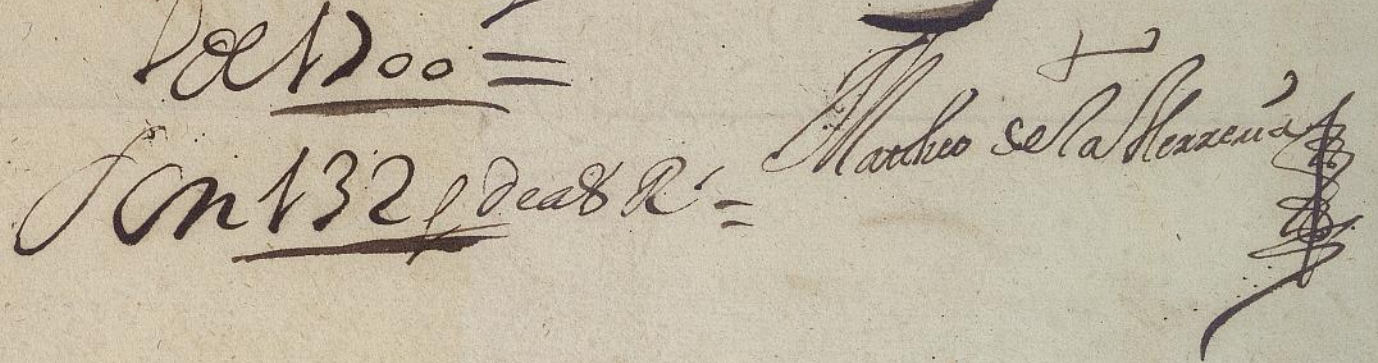 de 1700 =
Son 132 p de a 8 Rs =
Matheo de la Herreria